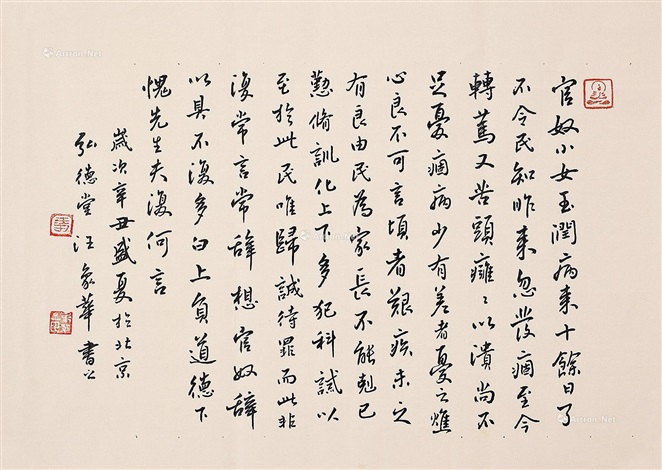 官奴小女玉潤病来十餘日了
不令民知昨来忽發痼至今
轉篤又苦頭癰〻以潰尚不
足憂痼病少有差者憂之燋
心良不可言頃者艱疾未之
有良由民為家長不能剋己
懃脩訓化上下多犯科誡以
至於此民唯歸誠待罪而此非
復常言常辭想官奴辭
以具不復多白上負道德下
愧先生夫復何言
歲次辛丑盛夏於北京
弘德堂汪象華書之
Artron.Net